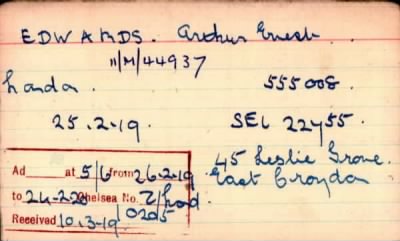 EDWARDS. Arthur Ernest.
11/M/44937
London. 555008.
25.2-19. SEL 22455.
45 Leslie Grove.
East Croydon
Ad at 5/6 from 26-2-19
to 24-2-20 Chelsea No. 2/Lond.
Received 10.3-19 / 0205